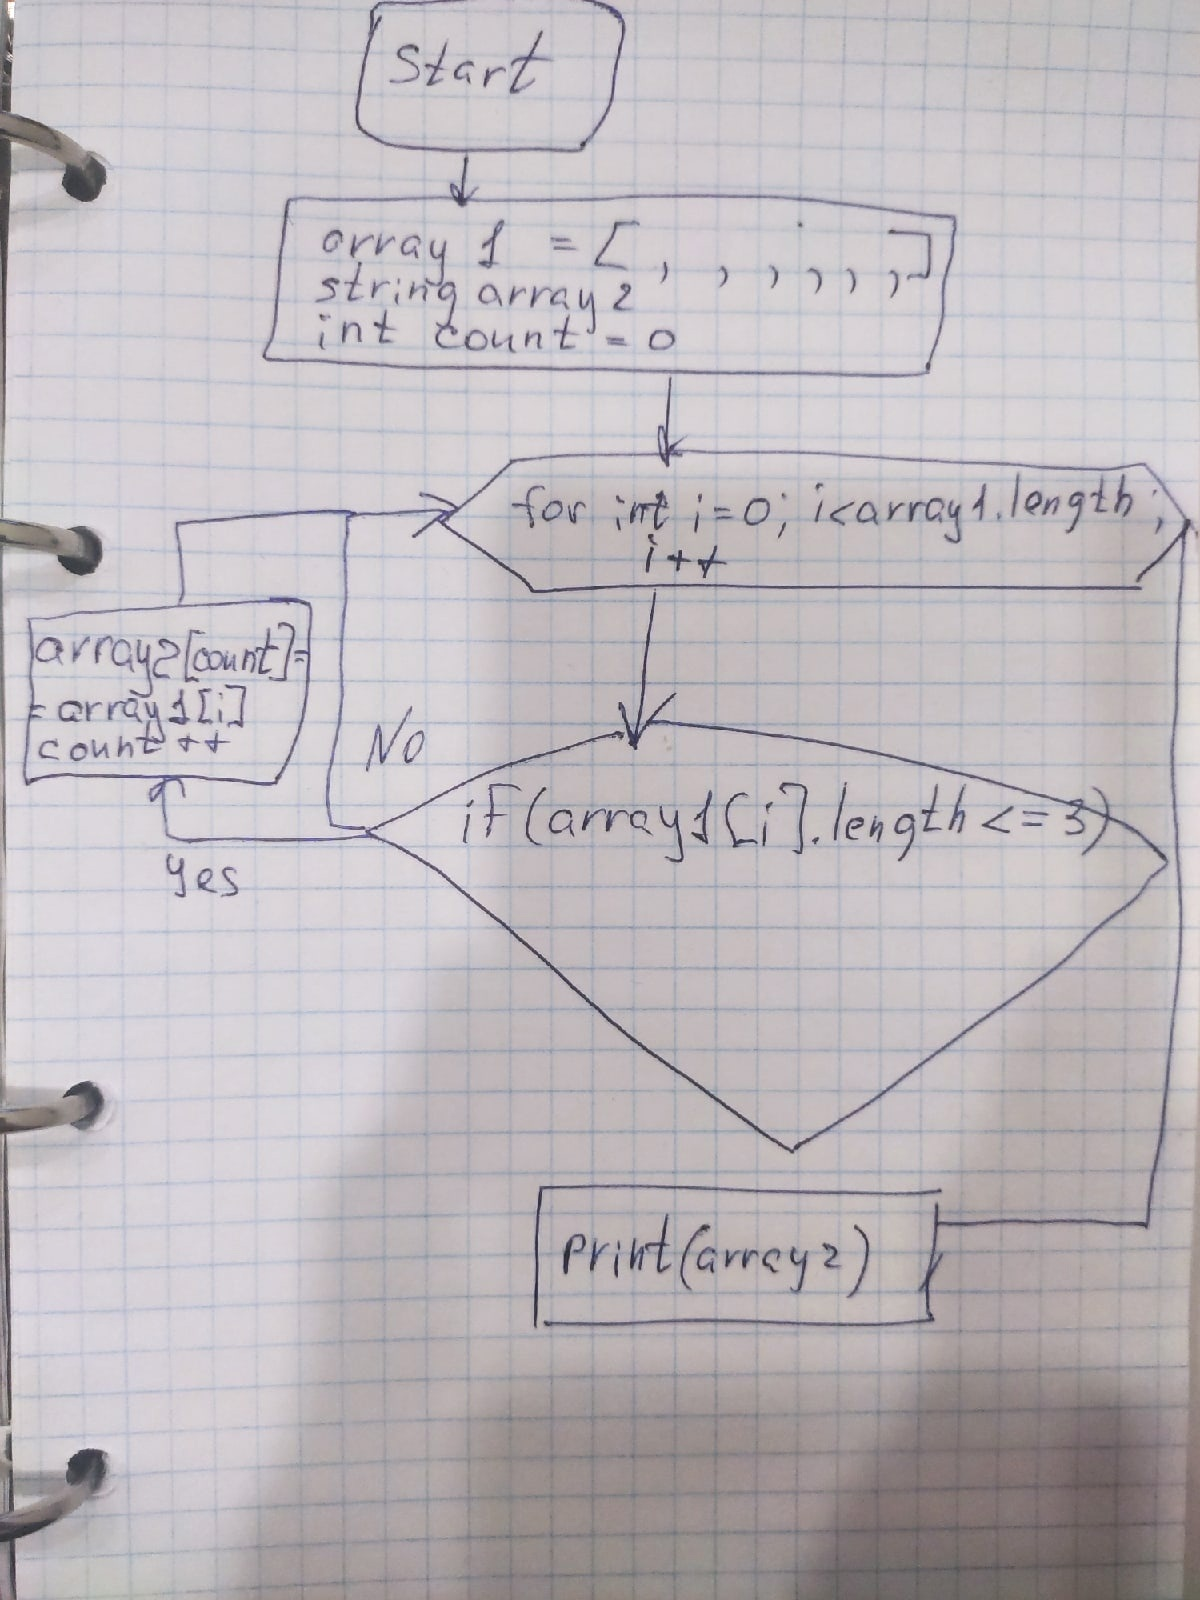 Start
array 1 = [ , , , , , , ]
string array 2
int count = 0
for int i=0; i<array1.length;
i++
array2[count]=
=array1[i]
count ++
No
if(array1[i].length <= 3)
Yes
Print(array2)